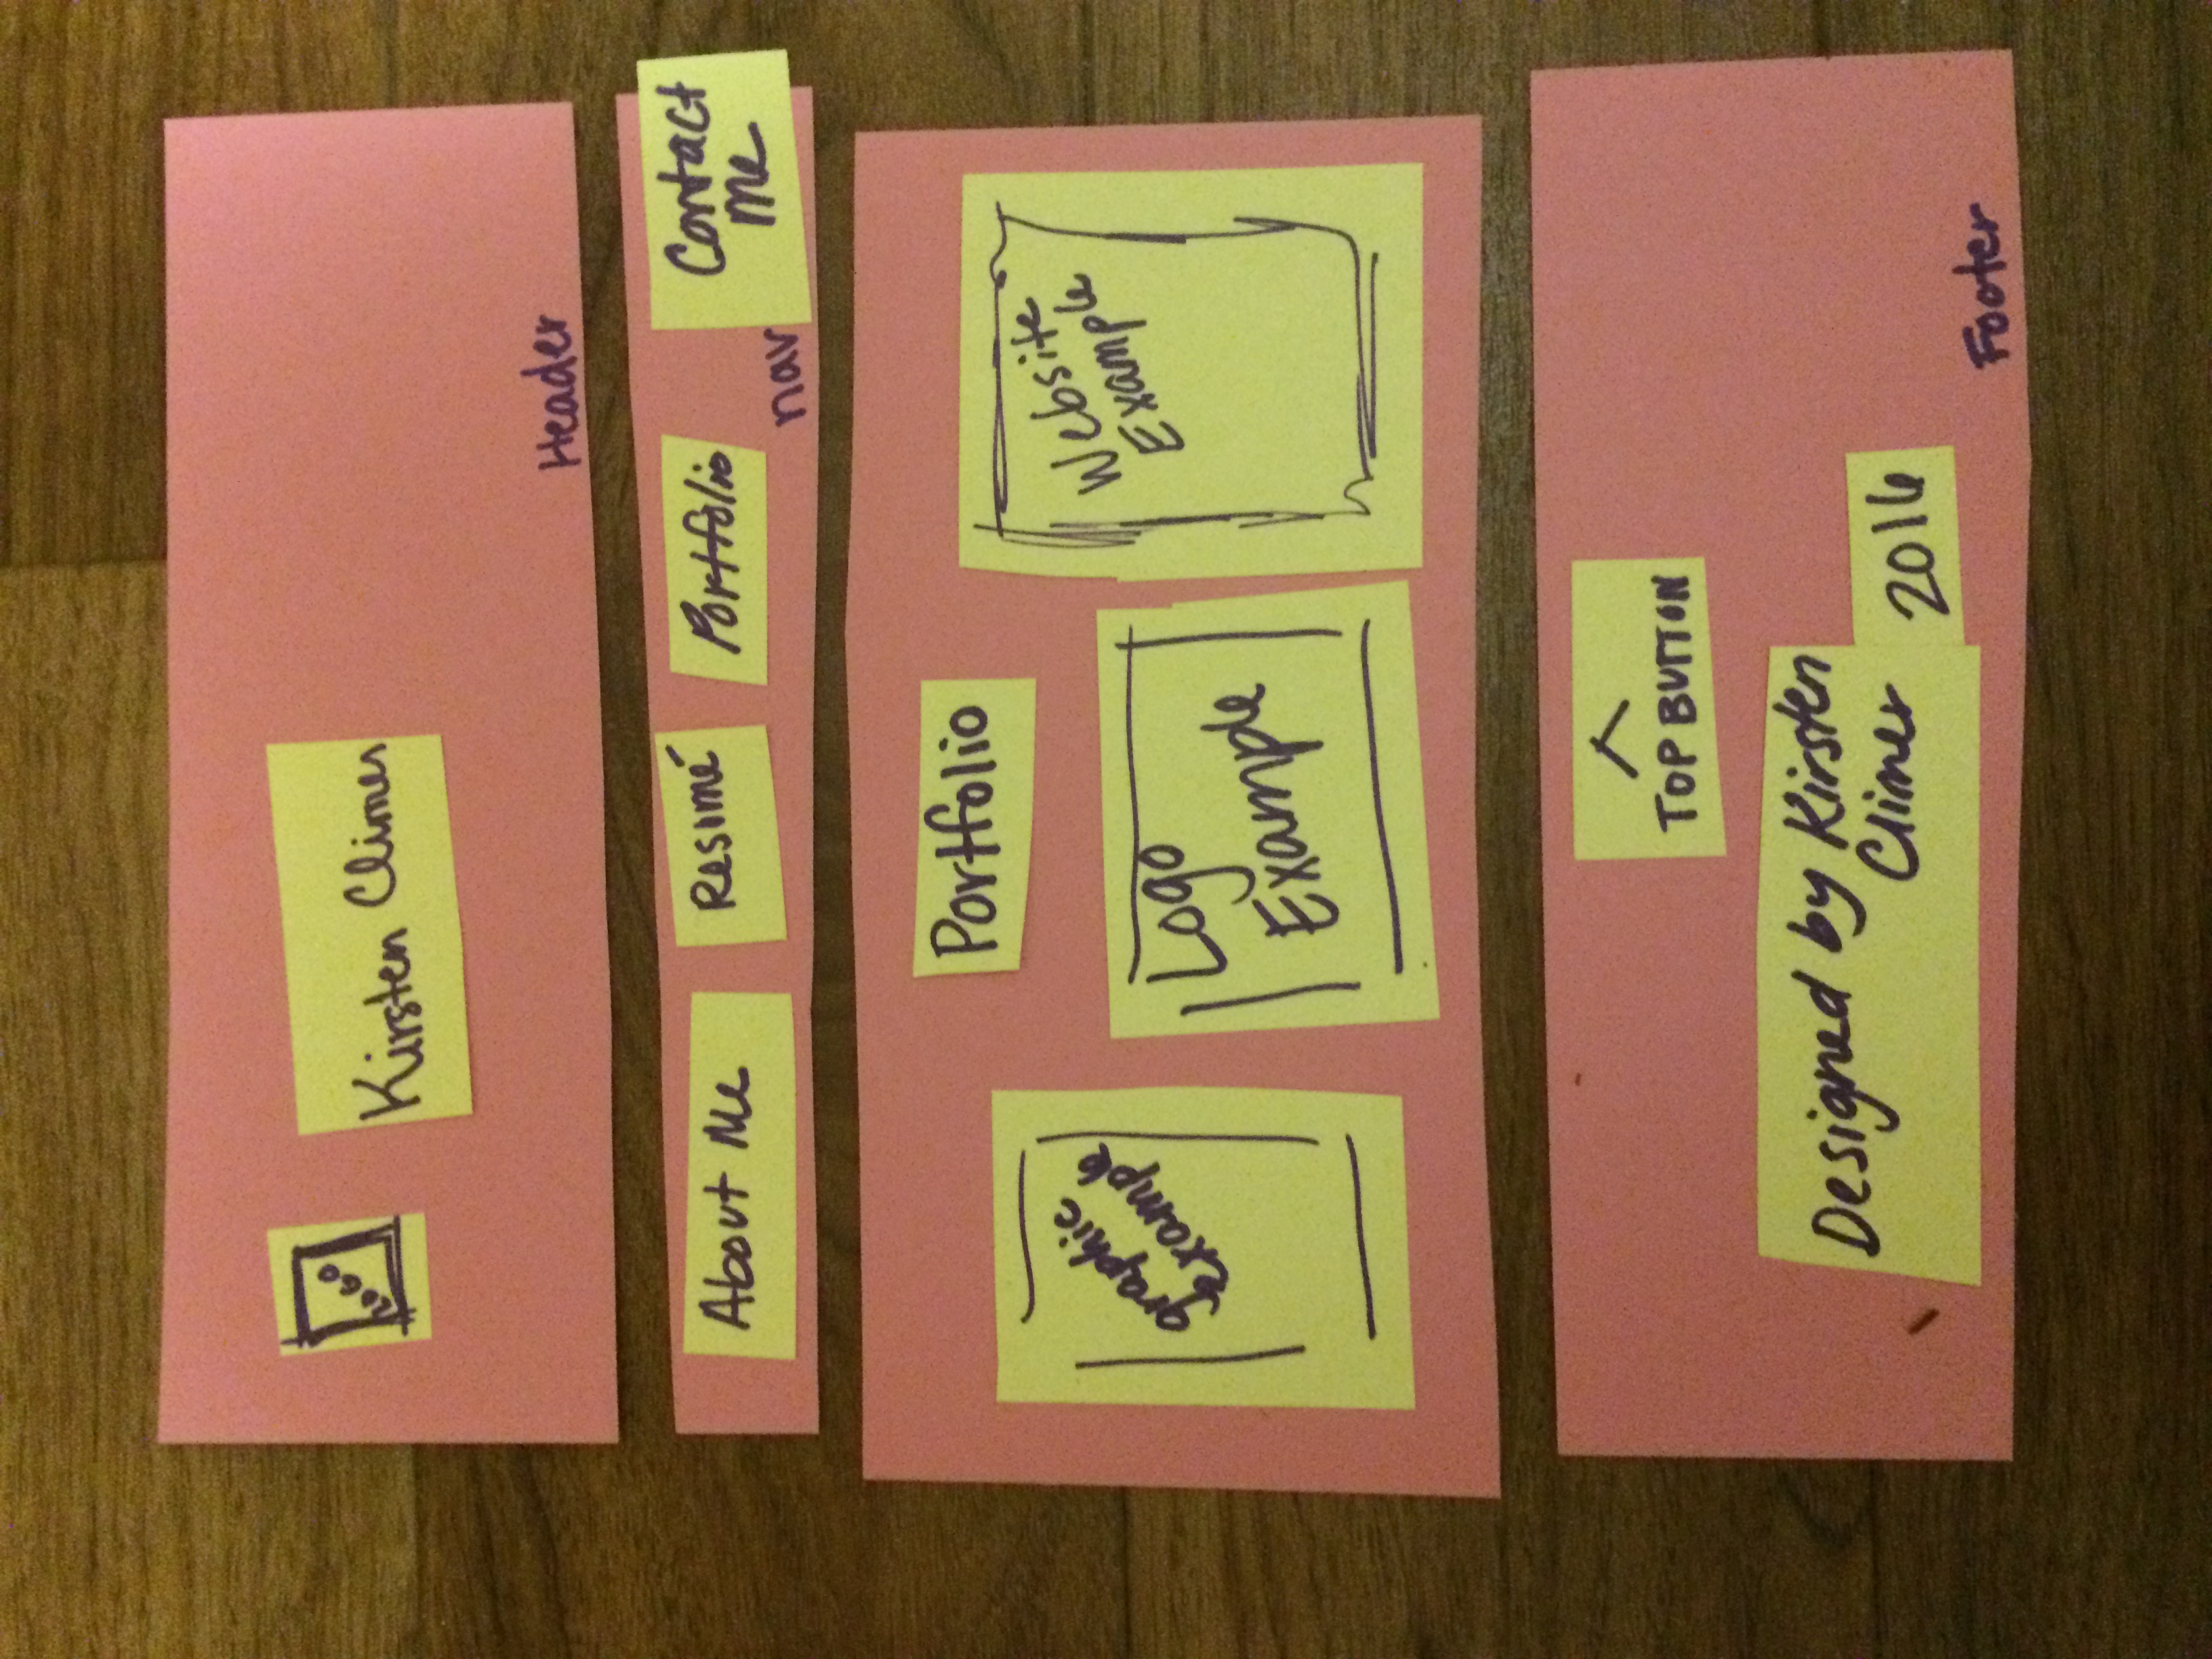 LOGO
Kirsten Climer
Header
About Me
Resimé
Portfolio
nav
Contact
Me
Portfolio
graphic
example
Logo
Example
Website
Example
TOP BUTTON
Designed by Kirsten
Climer
2016
Footer